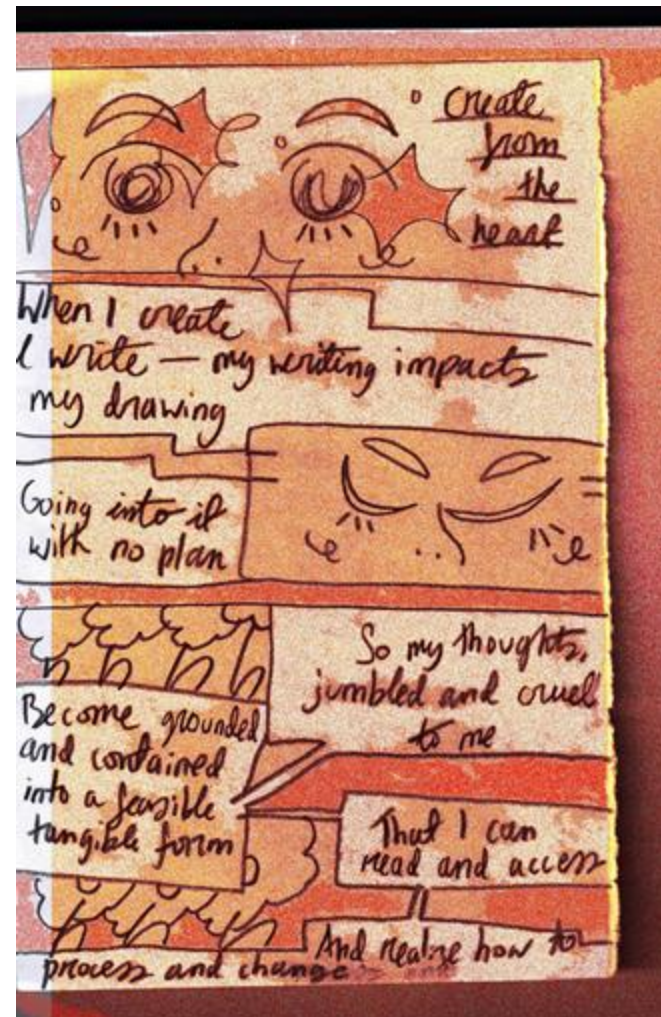 Create
from
the
heart
When I create
I write — my writing impacts
my drawing
Going into it
with no plan
So my thoughts,
jumbled and cruel
to me
Become grounded
and contained
into a feasible
tangible form
That I can
read and access
And realize how to
process and change